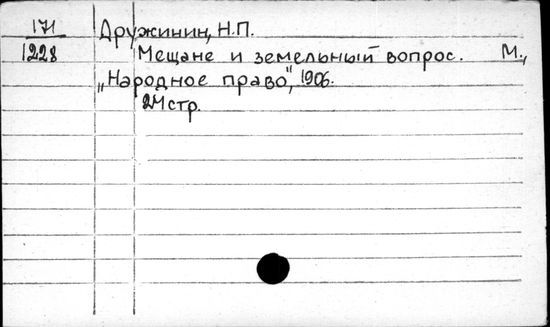 171 Дружинин, Н.П.
1228 Мещане и земельный вопрос. М.,
„Народное право", 1906.
стр.